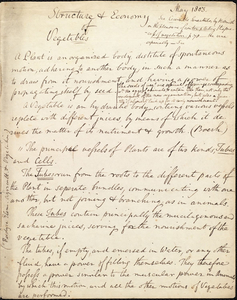 May 1803.
Structure & Economy
of
Vegetables
A Plant is an organised body destitute of spontaneous
motion, adhering to another body, in such a manner as
to draw from it nourishment, and having a power of
propagating itself by seed
A Vegetable is an hydraulic body, containing vessels
replete with different juices, by means of which it de
rives the matter of its nutriment & growth
The principal vessels of Plants are of two kinds, Tubes
and Cells.
The Tubes run from the root to the different parts of
the Plant in separate bundles, communicating with one
another, but not joining & branching, as in animals.
These Tubes contain principally the mucilaginous and
saccharine juices, serving for the nourishment of the
vegetable.
The tubes, if empty and emersed in Water, or any other
fluid, have a power of filling themselves. They therefore
possess a power similar to the muscular power in animals
by which this motion and all the other motions of Vegetables
are performed.